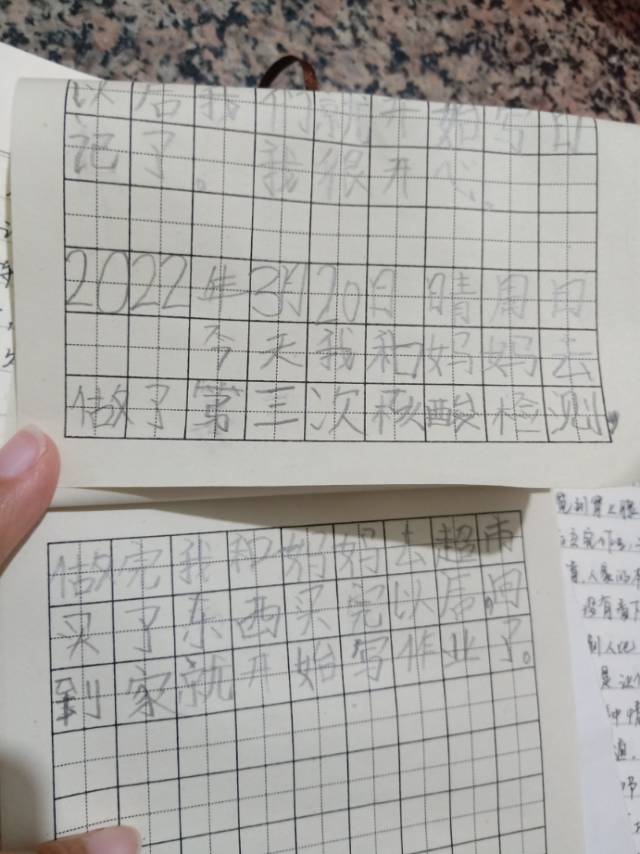 以后我们就开始写日
记了。我很开心。
2022年3月20日 晴 周日
今天我和妈妈去
做了第三次核酸检测,
做完我和妈妈去超市
买了东西买完以后。回
到家就开始写作业了。